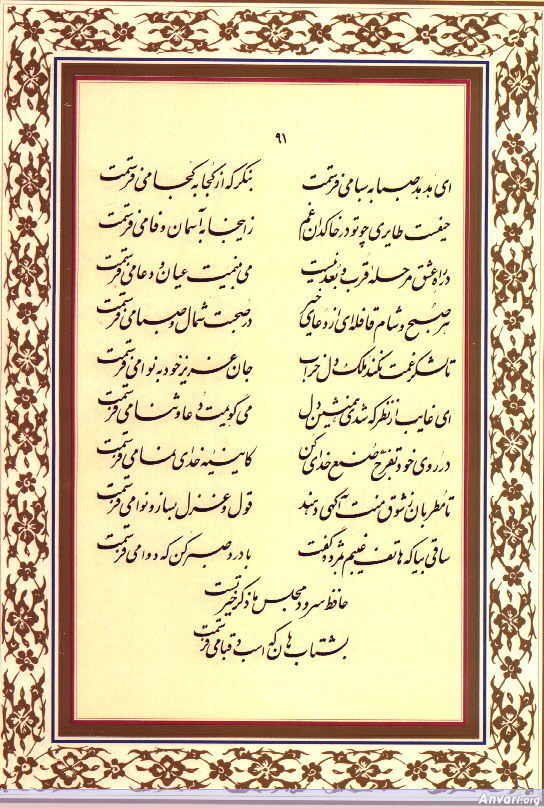 ۹۱
ای هدهد صبا به سبا می فرستمت    بنگر که از کجا به کجا می فرستمت
حیفست طایری چو تو در خاکدان غم    زاینجا به آشیان وفا می فرستمت
در راه عشق مرحله قرب و بعد نیست    می بینمت عیان و دعا می فرستمت
هر صبح و شام قافله ای از دعای خیر    در صحبت شمال و صبا می فرستمت
تا لشکر غمت نکند ملک دل خراب    جان عزیز خود به نوا می فرستمت
ای غایب از نظر که شدی همنشین دل    می گویمت دعا و ثنا می فرستمت
در روی خود تفرج صنع خدای کن    کایینه خدای نما می فرستمت
تا مطربان ز شوق منت آگهی دهند    قول و غزل بساز و نوا می فرستمت
ساقی بیا که هاتف غیبم بمژده گفت    با درد صبر کن که دوا می فرستمت
حافظ سرود مجلس ما ذکر خیر تست
بشتاب هان که اسب و قبا می فرستمت
Anvari.org